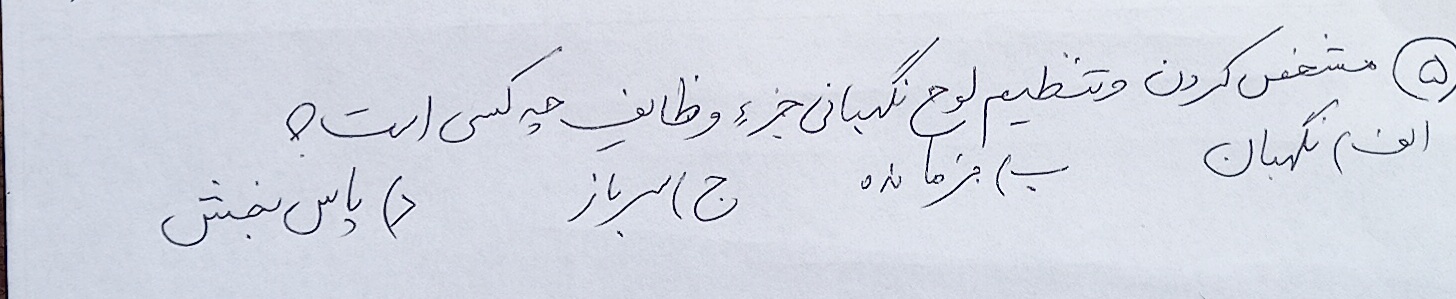 ۵) مشخص کردن و تنظیم لوح نگهبانی جزء وظایف چه کسی است؟
الف) نگهبان ب) فرمانده ج) سرباز د) پاس بخش